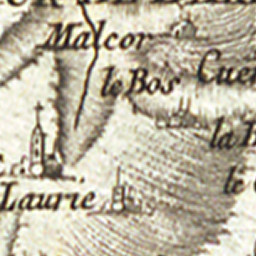 Malcor
le Bos
Cue
la
le
Laurie